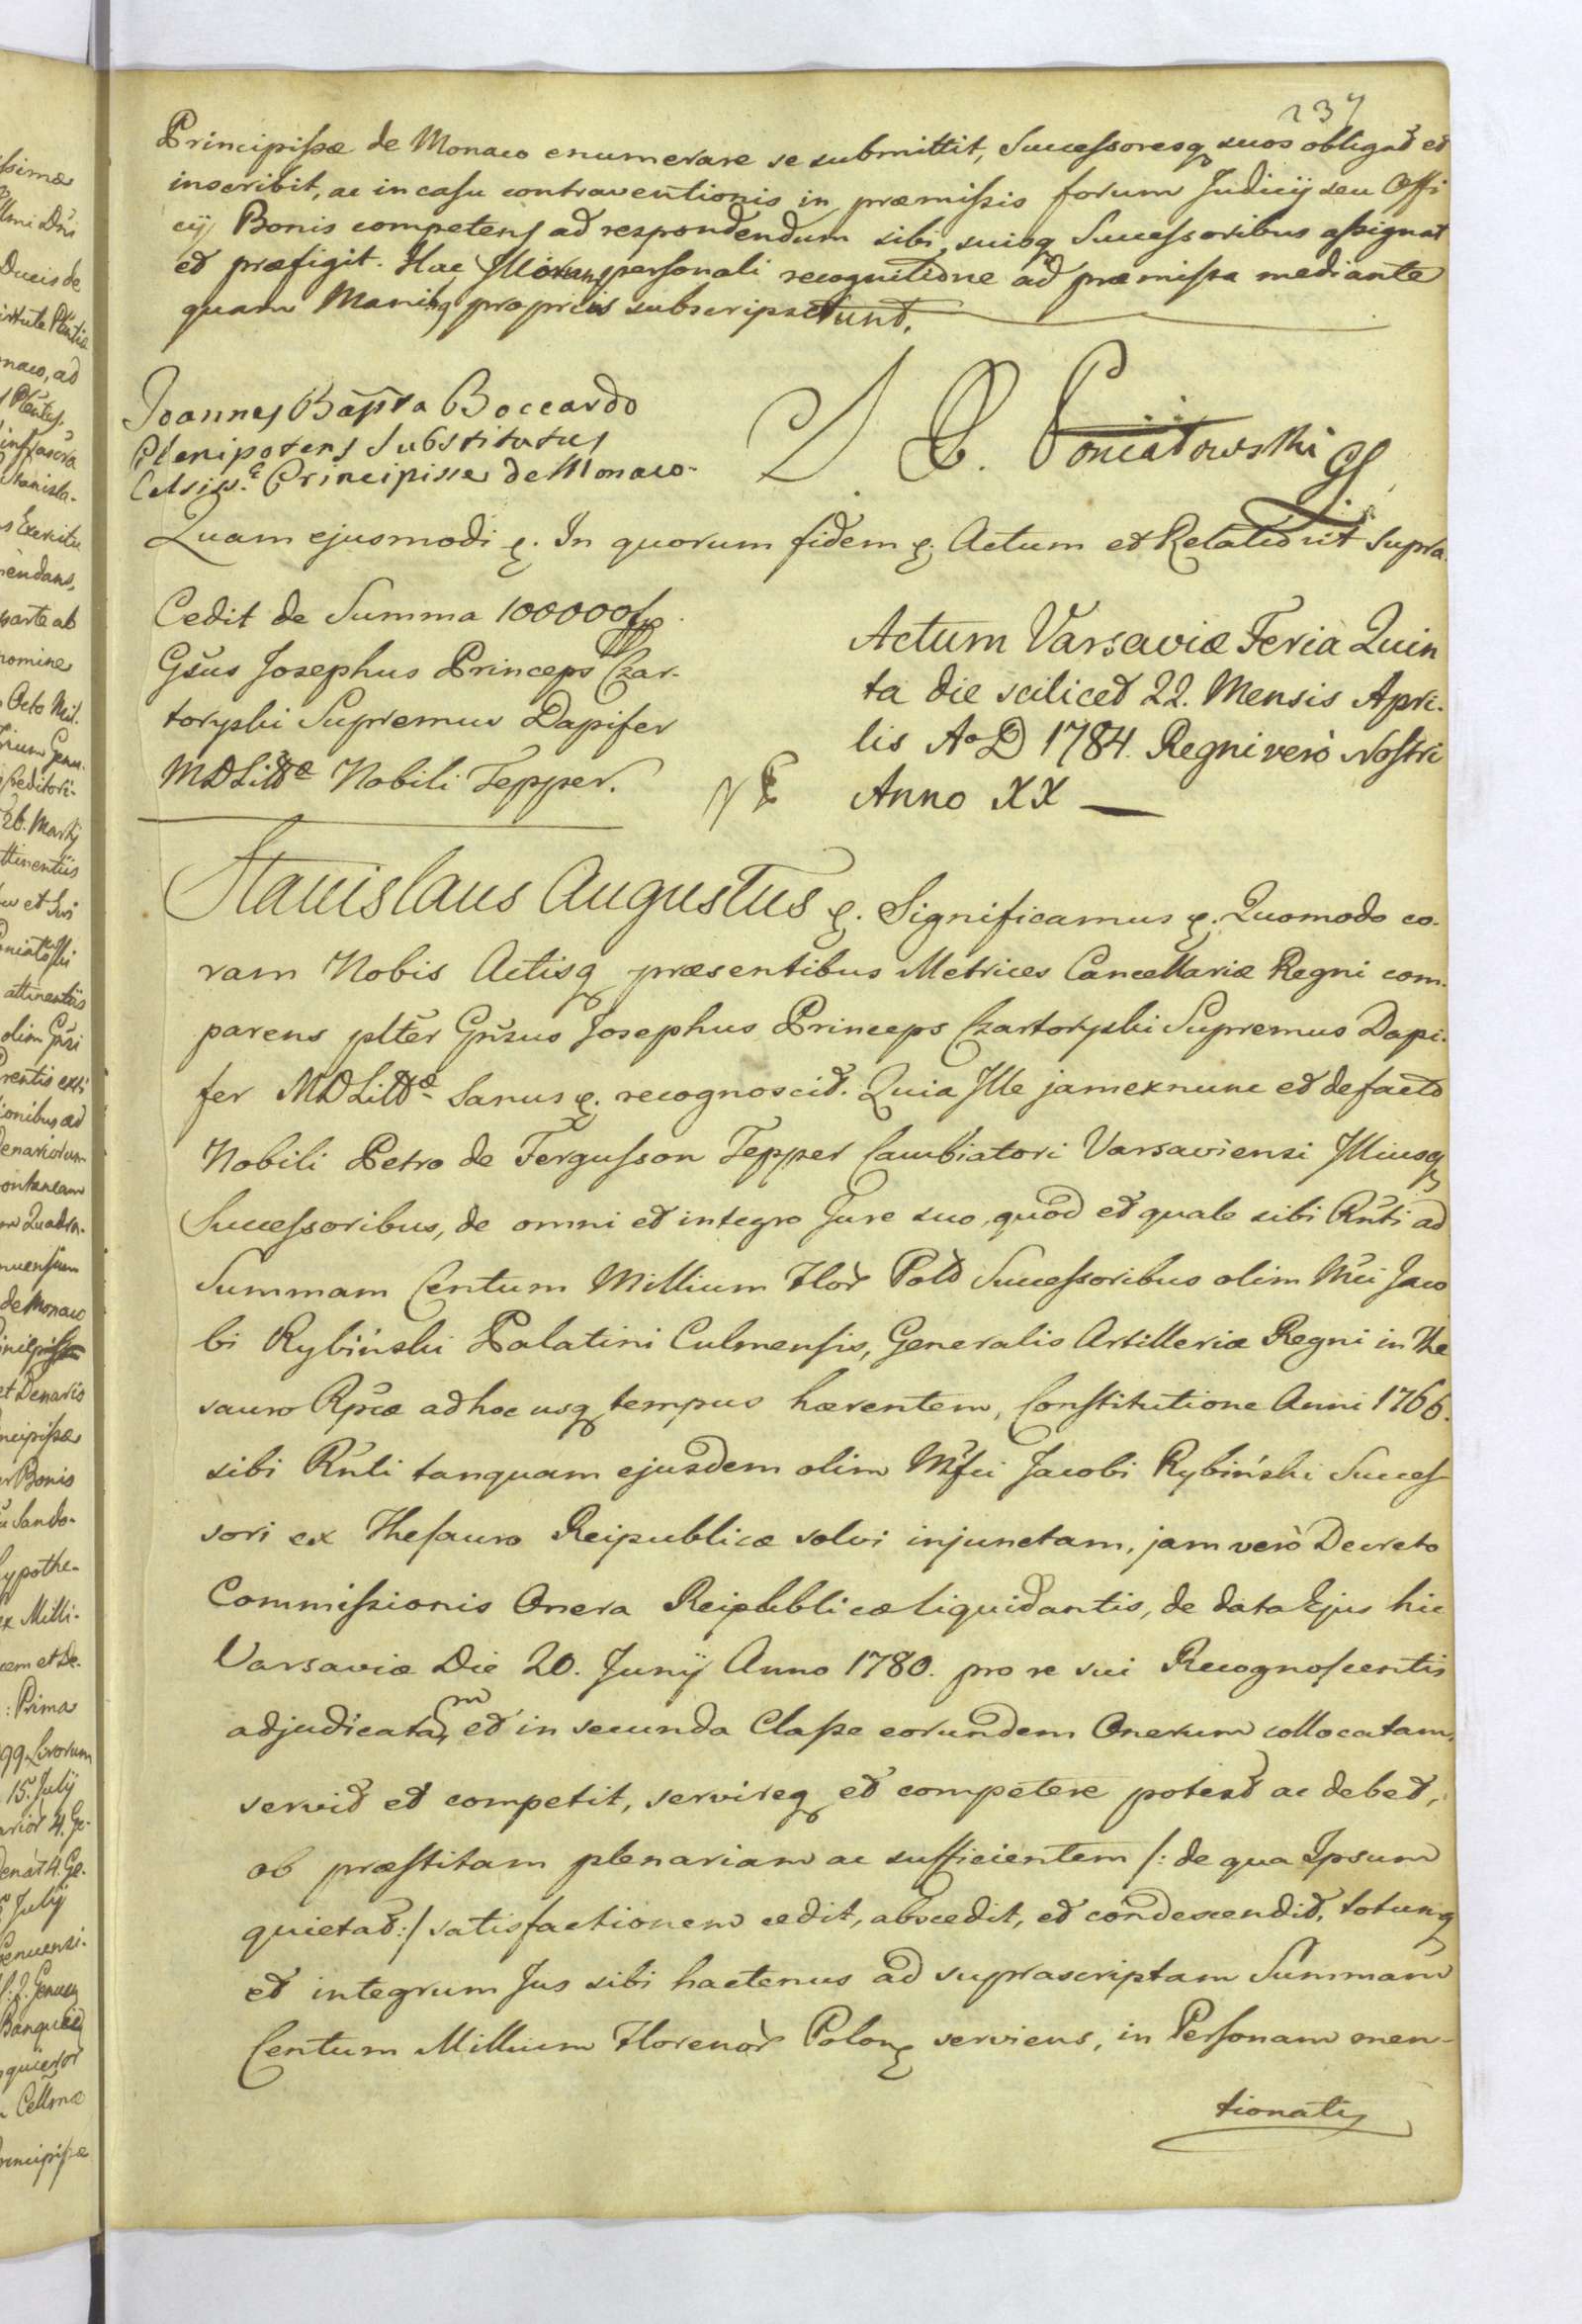 237
Principissæ de Monaco enumerare se submittit, Successoresq suos obligat et
inscribit, ac in casu contraventionis in præmissis forum Judicij seu Offi
cij Bonis competens ad respondendum sibi, suisq Successoribus assignat
et præfigit. Hac Illorum personali recognitione ad præmissa mediante
quam Manibq propriis subscripserunt.
Joannes Bapta Boccardo
Plenipotens Substitutus
Celsiss.æ Principissæ de Monaco.
Poniatowski
Quam ejusmodi &. In quorum fidem &. Actum et Relatio ut supra.
Cedit de Summa 100000 fp.
Gsus Josephus Princeps Czar-
toryski Supremus Dapifer
MDLittæ Nobili Tepper.
Actum Varsaviæ Feria Quin
ta die scilicet 22. Mensis Apri-
lis AoD 1784. Regni verò Nostri
Anno XX —
Stanislaus Augustus &. Significamus &. Quomodo co-
ram Nobis Actisq præsentibus Metrices Cancellariæ Regni com-
parens plter Gnsus Josephus Princeps Czartoryski Supremus Dapi-
fer MDLittæ Sanus &. recognoscit. Quia Ille jam ex nunc et de facto
Nobili Petro de Fergusson Tepper Cambiatori Varsaviensi Illiusq
Successoribus, de omni et integro Jure suo, quod et quale sibi Rnti ad
Summam Centum Millium Flor Pold Successoribus olim Mci Jaco
bi Rybiński Palatini Culmensis, Generalis Artilleriæ Regni in The
sauro Rpcæ ad hoc usq tempus hærentem, Constitutione Anni 1766.
sibi Rnti tanquam ejusdem olim Mfci Jacobi Rybiński Succes
sori ex Thesauro Reipublicæ solvi injunctam, jam verò Decreto
Commissionis Onera Reipublicæ liquidantis, de data Ejus hic
Varsaviæ Die 20. Junij Anno 1780. pro re sui Recognoscentis
adjudicatam et in secunda Classe eorundem Onerum collocatam,
servit et competit, servireq et competere potest ac debet,
ob præstitam plenariam ac sufficientem /: de qua Ipsum
quietat :/ satisfactionem cedit, abscedit, et condescendit, totumq
et integrum Jus sibi hactenus ad suprascriptam Summam
Centum Millium Florenor Polon serviens, in Personam men-
tionati